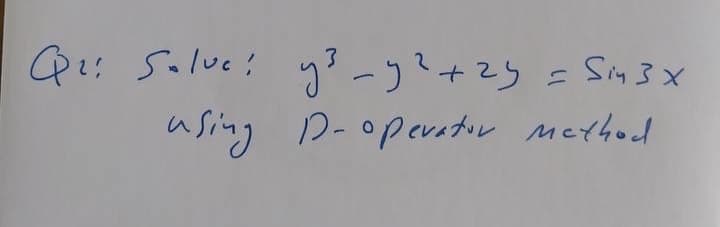 Q2: Solve: y³ - y² + 2y = Sin 3x
using D-operator method